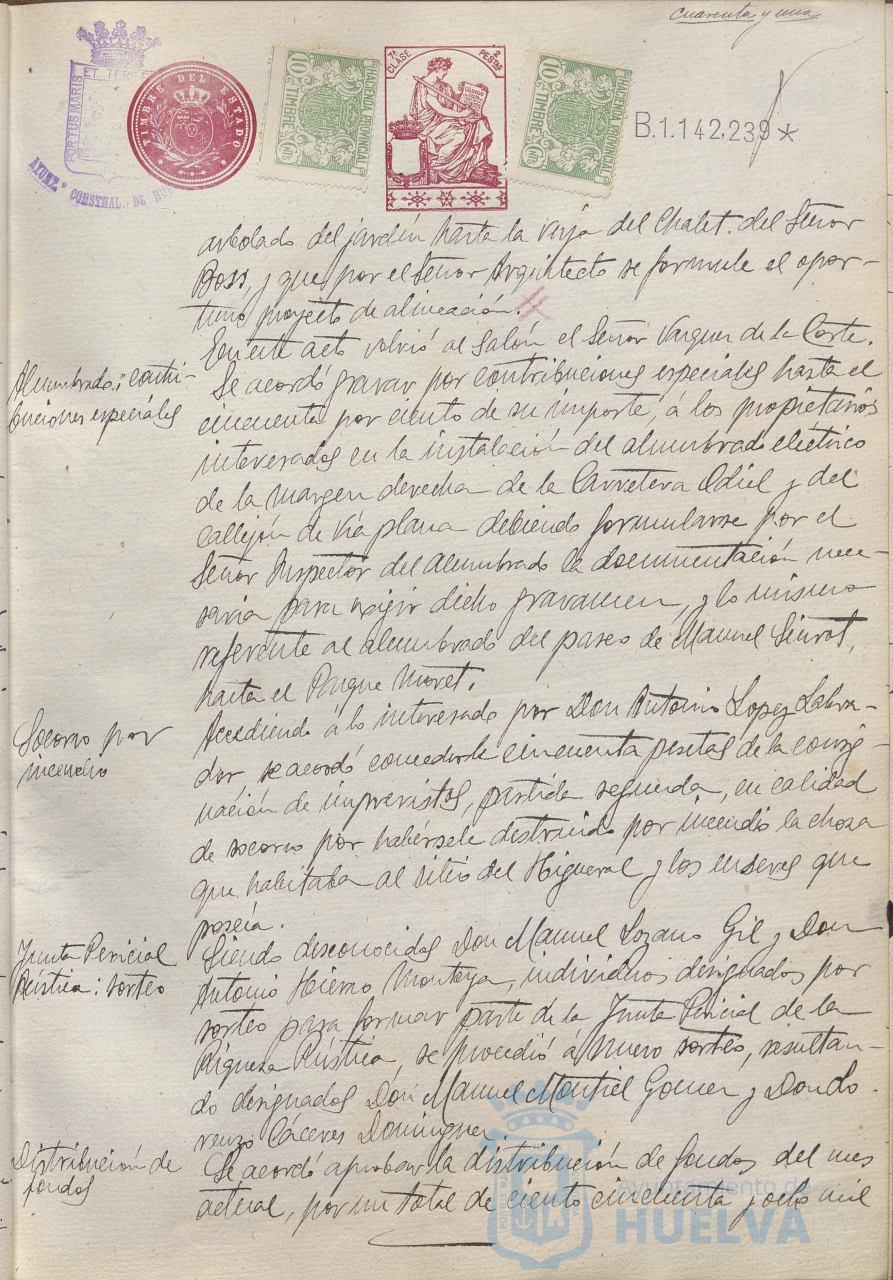 Cuarenta y una
PORTUS MARIS
ET TERRE
AYUNT.º CONSTNAL. DE HU
TIMBRE DEL ESTADO
10 Cts
TIMBRE
HACIENDA PROVINCIAL
7ª CLASE
2 PESETAS
10 Cts
TIMBRE
HACIENDA PROVINCIAL
B.1.142.239*
arbolado del jardín hasta la verja del Chalet del Señor
Boss, y que por el Señor Arquitecto se formule el opor-
tuno proyecto de alineación.
En este acto volvió al Salón el Señor Vazquez de la Corte.
Alumbrado: contri-
buciones especiales
Se acordó gravar por contribuciones especiales hasta el
cincuenta por ciento de su importe, á los propietarios
interesados en la instalación del alumbrado eléctrico
de la margen derecha de la Carretera Odiel y del
callejón de Vía plana debiendo formularse por el
Señor Inspector del Alumbrado la documentación nece-
saria para exigir dicho gravamen, y lo mismo
referente al alumbrado del paseo de Manuel Siurot,
hasta el Parque Moret.
Socorro por
incendio
Accediendo á lo interesado por Don Antonio Lopez Labra-
dor se acordó concederle cincuenta pesetas de la consig-
nación de imprevistos, partida segunda, en calidad
de socorro por habérsele destruido por incendio la choza
que habitaba al sitio del Higueral y los enseres que
poseía.
Junta Pericial
Rústica: sorteo
Siendo desconocidos Don Manuel Lozano Gil y Don
Antonio Hierro Montoya, individuos designados por
sorteo para formar parte de la Junta Pericial de la
Riqueza Rústica, se procedió á nuevo sorteo, resultan-
do designados Don Manuel Montiel Gomez y Don Lo-
renzo Cáceres Dominguez
Distribución de
fondos
Se acordó aprobar la distribución de fondos del mes
actual, por un total de ciento cincuenta y ocho mil
Ayuntamiento de
HUELVA